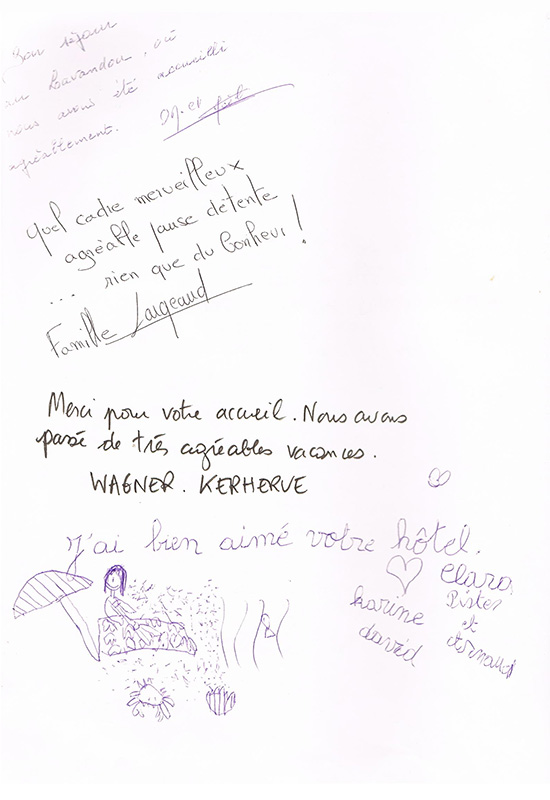 Bon séjour
au Lavandou, où
nous avons été accueilli
agréablement.
Quel cadre merveilleux
agréable pause détente
... rien que du bonheur !
Famille Largeaud
Merci pour votre accueil. Nous avons
passé de très agréables vacances.
WAGNER. KERHERVE
J'ai bien aimé votre hôtel.
Clara
Pister
et
Arnaud
Karine
david